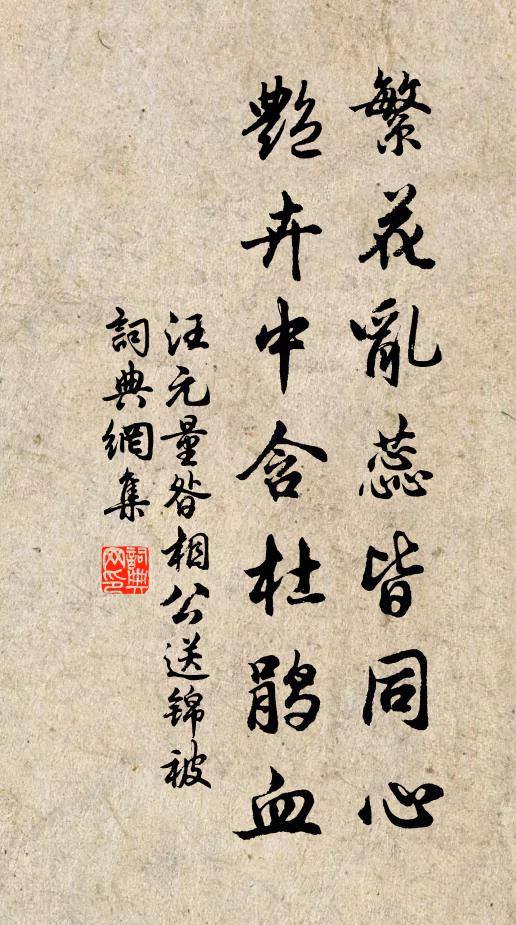 繁花亂蕊皆同心
艷卉中含杜鹃血
汪元量昝相公送錦被
詞典網集
詞典網印